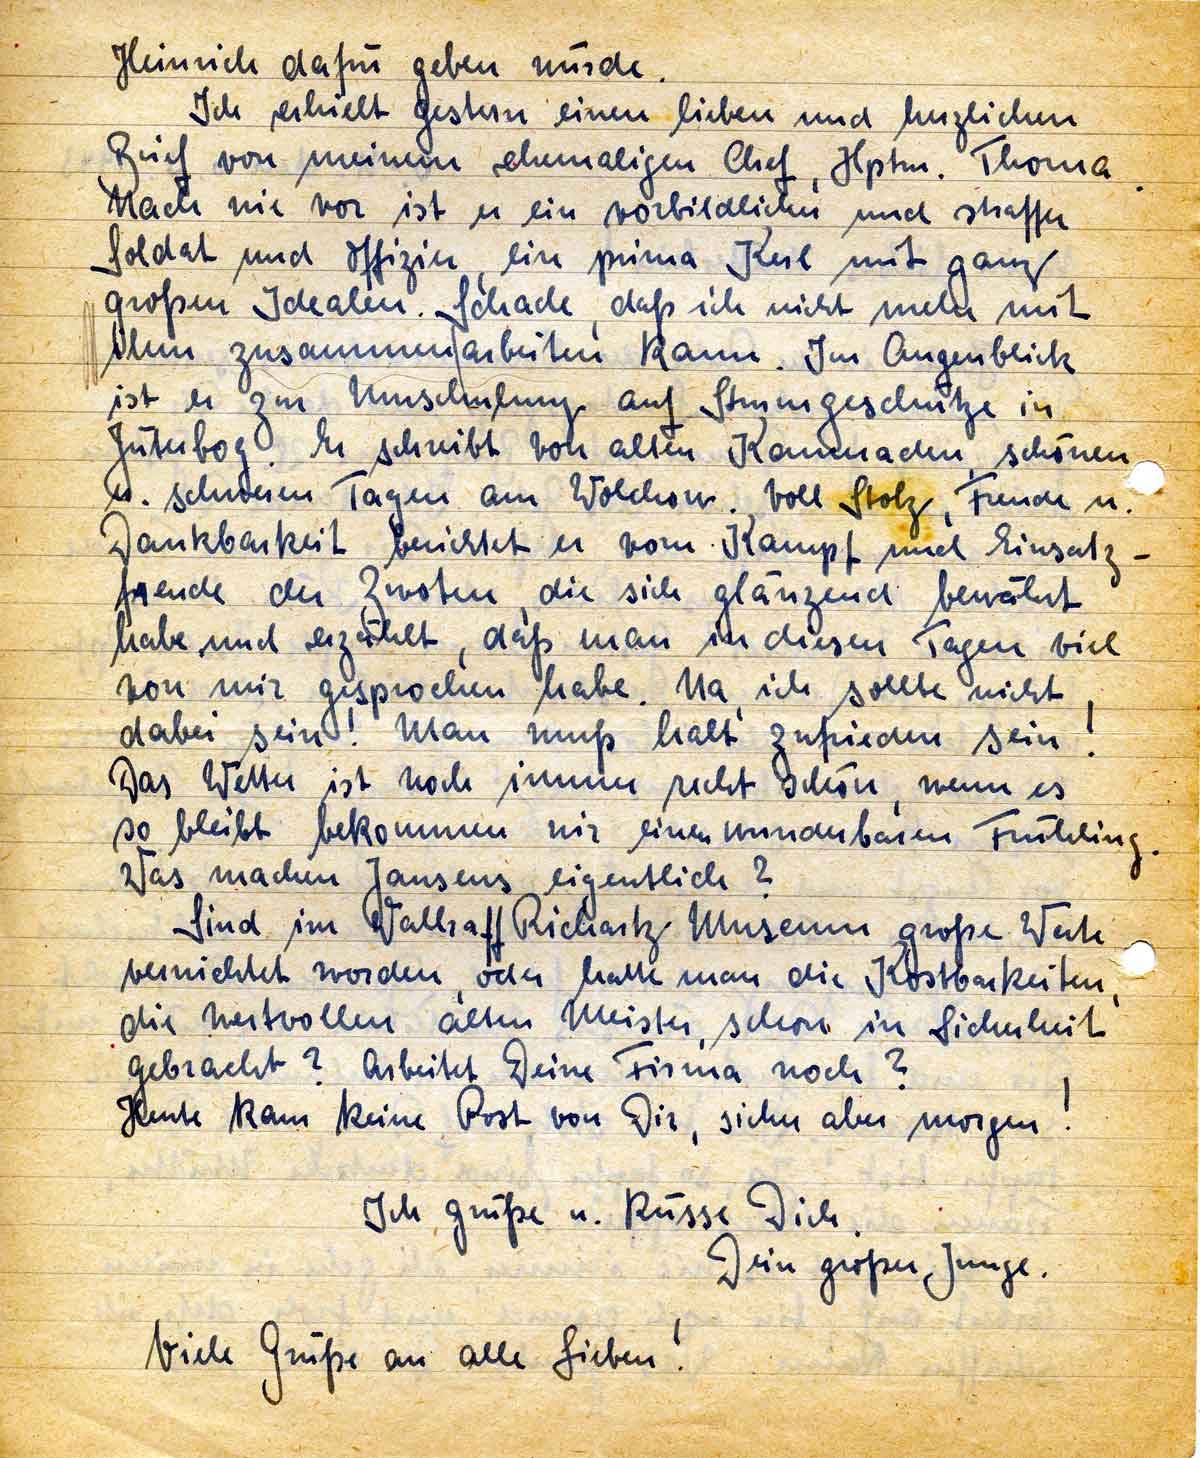 Heinrich dafür geben würde.
Ich erhielt gestern einen lieben und herzlichen
Brief von meinem ehemaligen Chef, Hptm. Thoma.
Nach wie vor ist er ein vorbildlicher und straffer
Soldat und Offizier, ein prima Kerl mit ganz
großen Idealen. Schade, daß ich nicht mehr mit
ihm zusammen arbeiten kann. Im Augenblick
ist er zur Umschulung auf Sturmgeschütze in
Jüterbog. Er schreibt von alten Kameraden, schönen
u. schweren Tagen am Wolchow. Voll Stolz, Freude u.
Dankbarkeit berichtet er vom Kampf und Einsatz-
freude der Zwoten, die sich glänzend bewährt
habe und erzählt, daß man in diesen Tagen viel
von mir gesprochen habe. Na, ich sollte nicht
dabei sein! Man muß halt zufrieden sein!
Das Wetter ist noch immer recht schön, wenn es
so bleibt bekommen wir einen wunderbaren Frühling.
Was machen Jansens eigentlich?
Sind im Wallraff Richartz Museum große Werte
vernichtet worden, oder hatte man die Kostbarkeiten,
die wertvollen alten Meister, schon in Sicherheit
gebracht? Arbeitet Deine Firma noch?
Heute kam keine Post von Dir, sicher aber morgen!
Ich grüße u. küsse Dich.
Dein großer Junge.
Viele Grüße an alle Lieben!